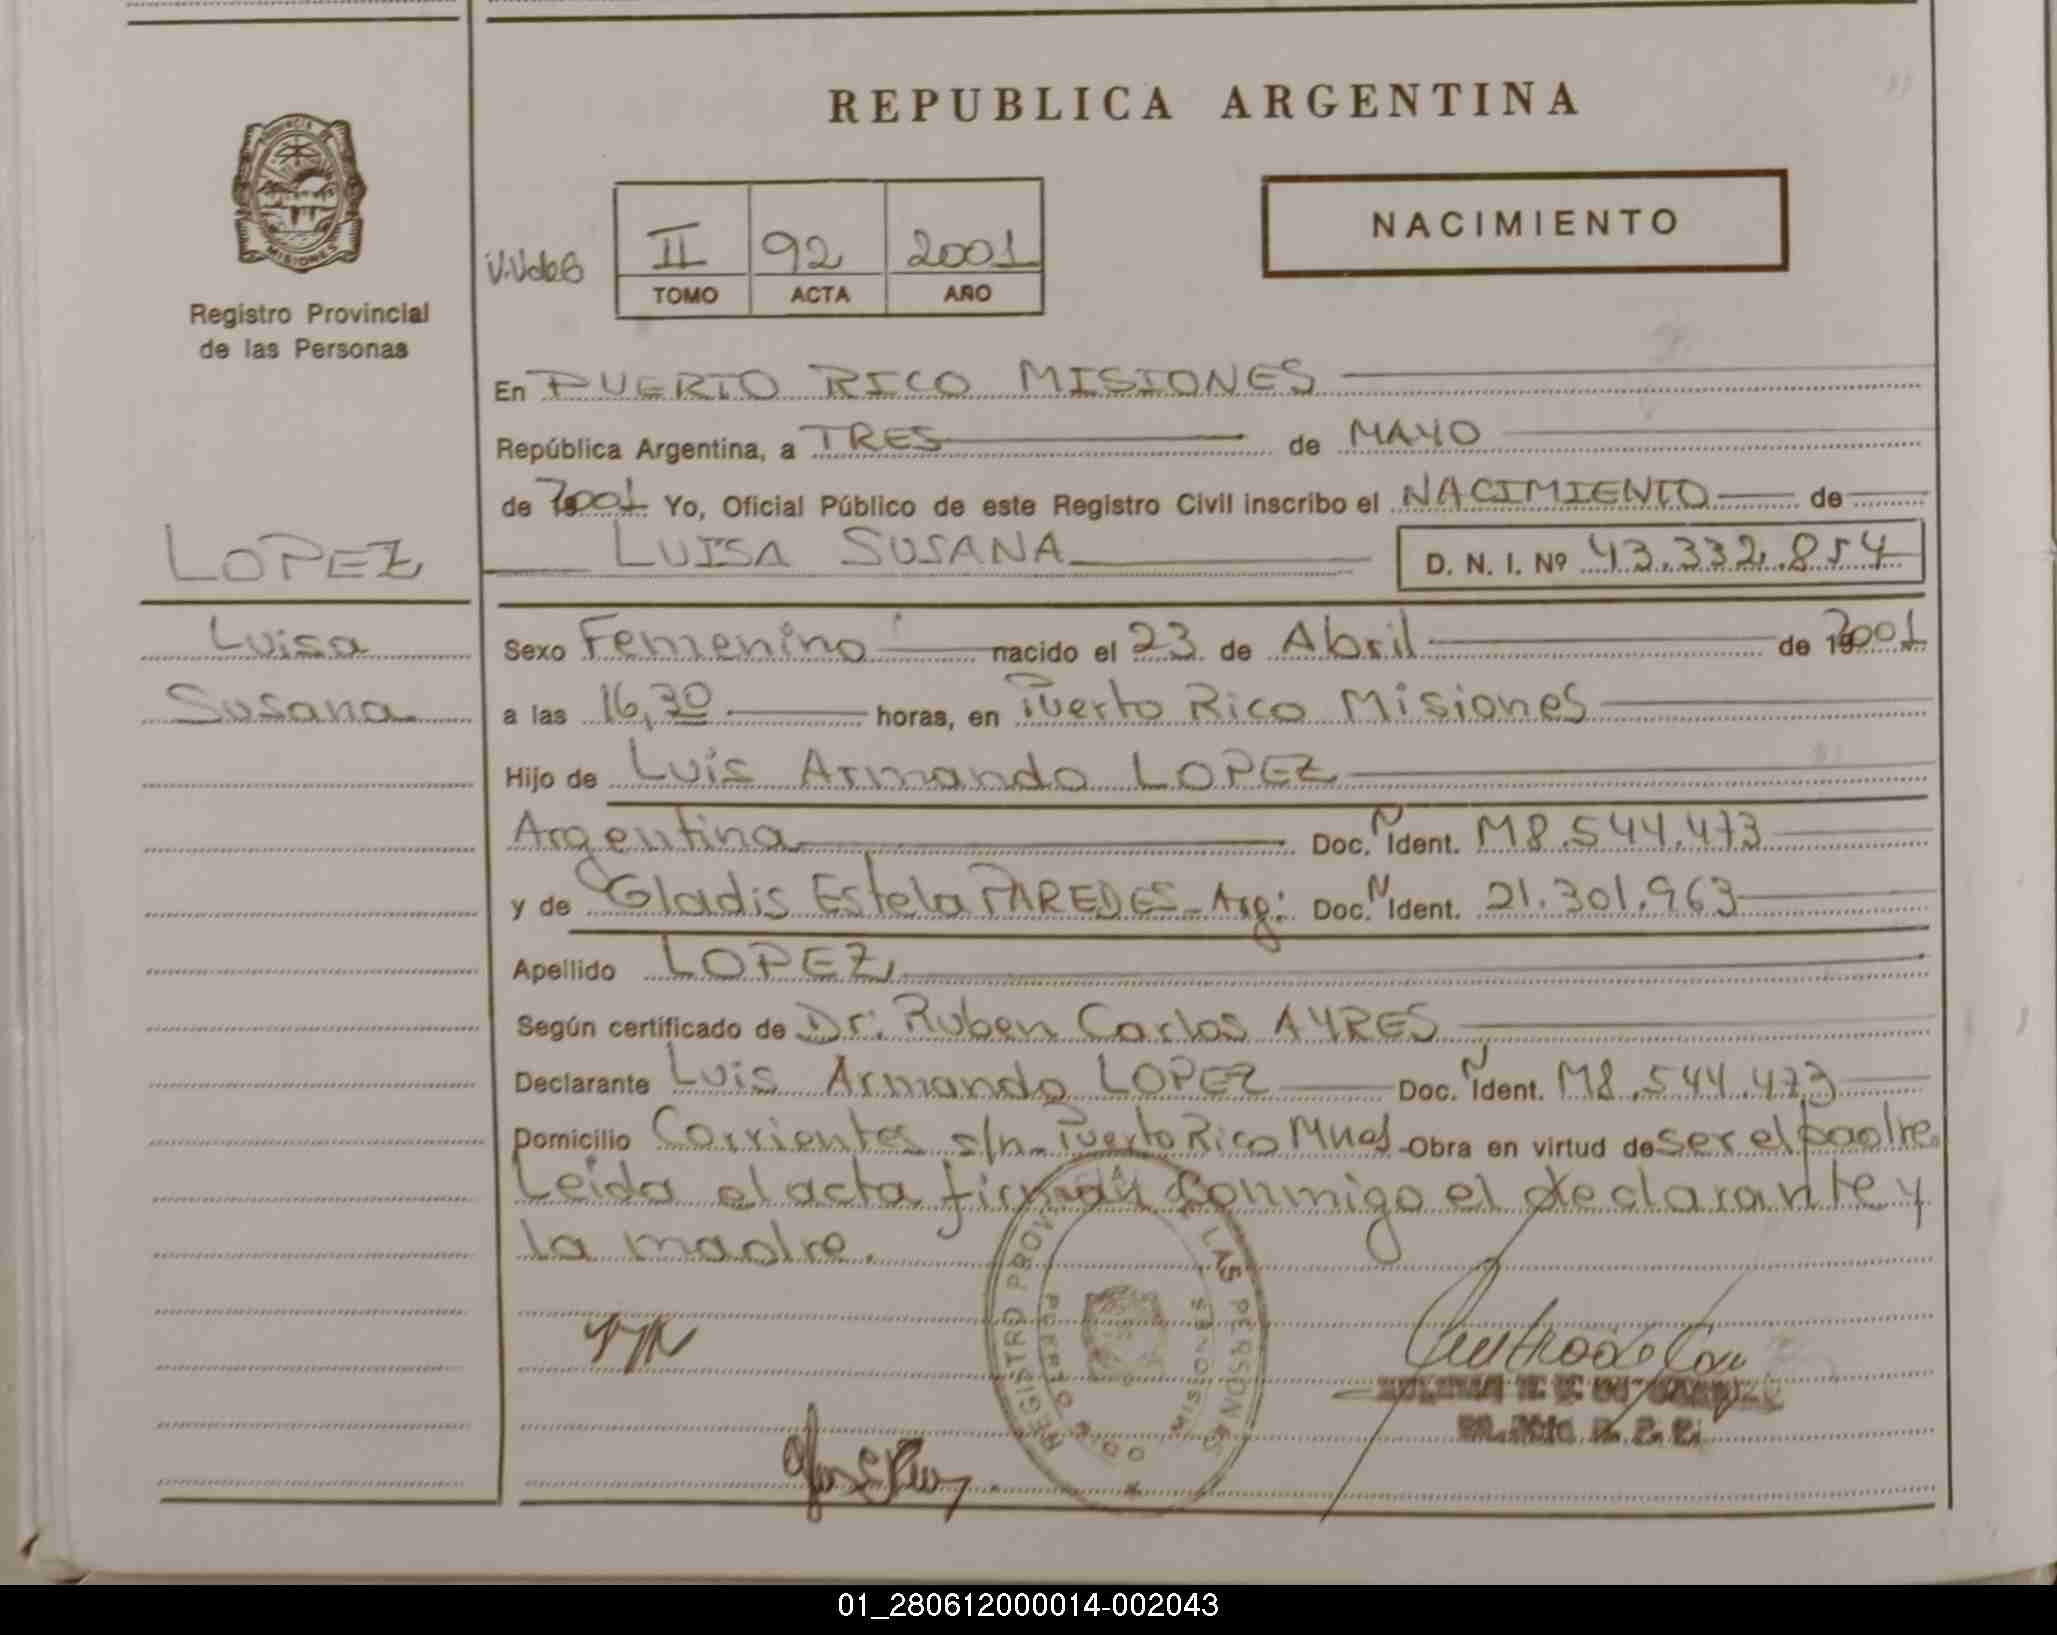 REPUBLICA ARGENTINA
PROVINCIA DE
MISIONES
Registro Provincial
de las Personas
NACIMIENTO
II 92 2001
TOMO ACTA AÑO
En PUERTO RICO MISIONES
República Argentina, a TRES de MAYO
de 2001 Yo, Oficial Público de este Registro Civil inscribo el NACIMIENTO de
LUISA SUSANA D. N. I. Nº 43.332.854
LOPEZ
Luisa
Susana
Sexo Femenino nacido el 23 de Abril de 2001
a las 16,30 horas, en Puerto Rico Misiones
Hijo de Luis Armando LOPEZ
Argentina Doc. N Ident. M8.544.473
y de Gladis Estela PAREDES - Arg: Doc. N Ident. 21.301.963
Apellido LOPEZ
Según certificado de Dr: Ruben Carlos AYRES
Declarante Luis Armando LOPEZ Doc. N Ident. M8.544.473
Domicilio Corrientes s/n - Puerto Rico Mnes Obra en virtud de ser el padre.
Leida el acta firman conmigo el declarante y
la madre.
REGISTRO PROVINCIAL DE LAS PERSONAS
PUERTO RICO MISIONES
01_280612000014-002043